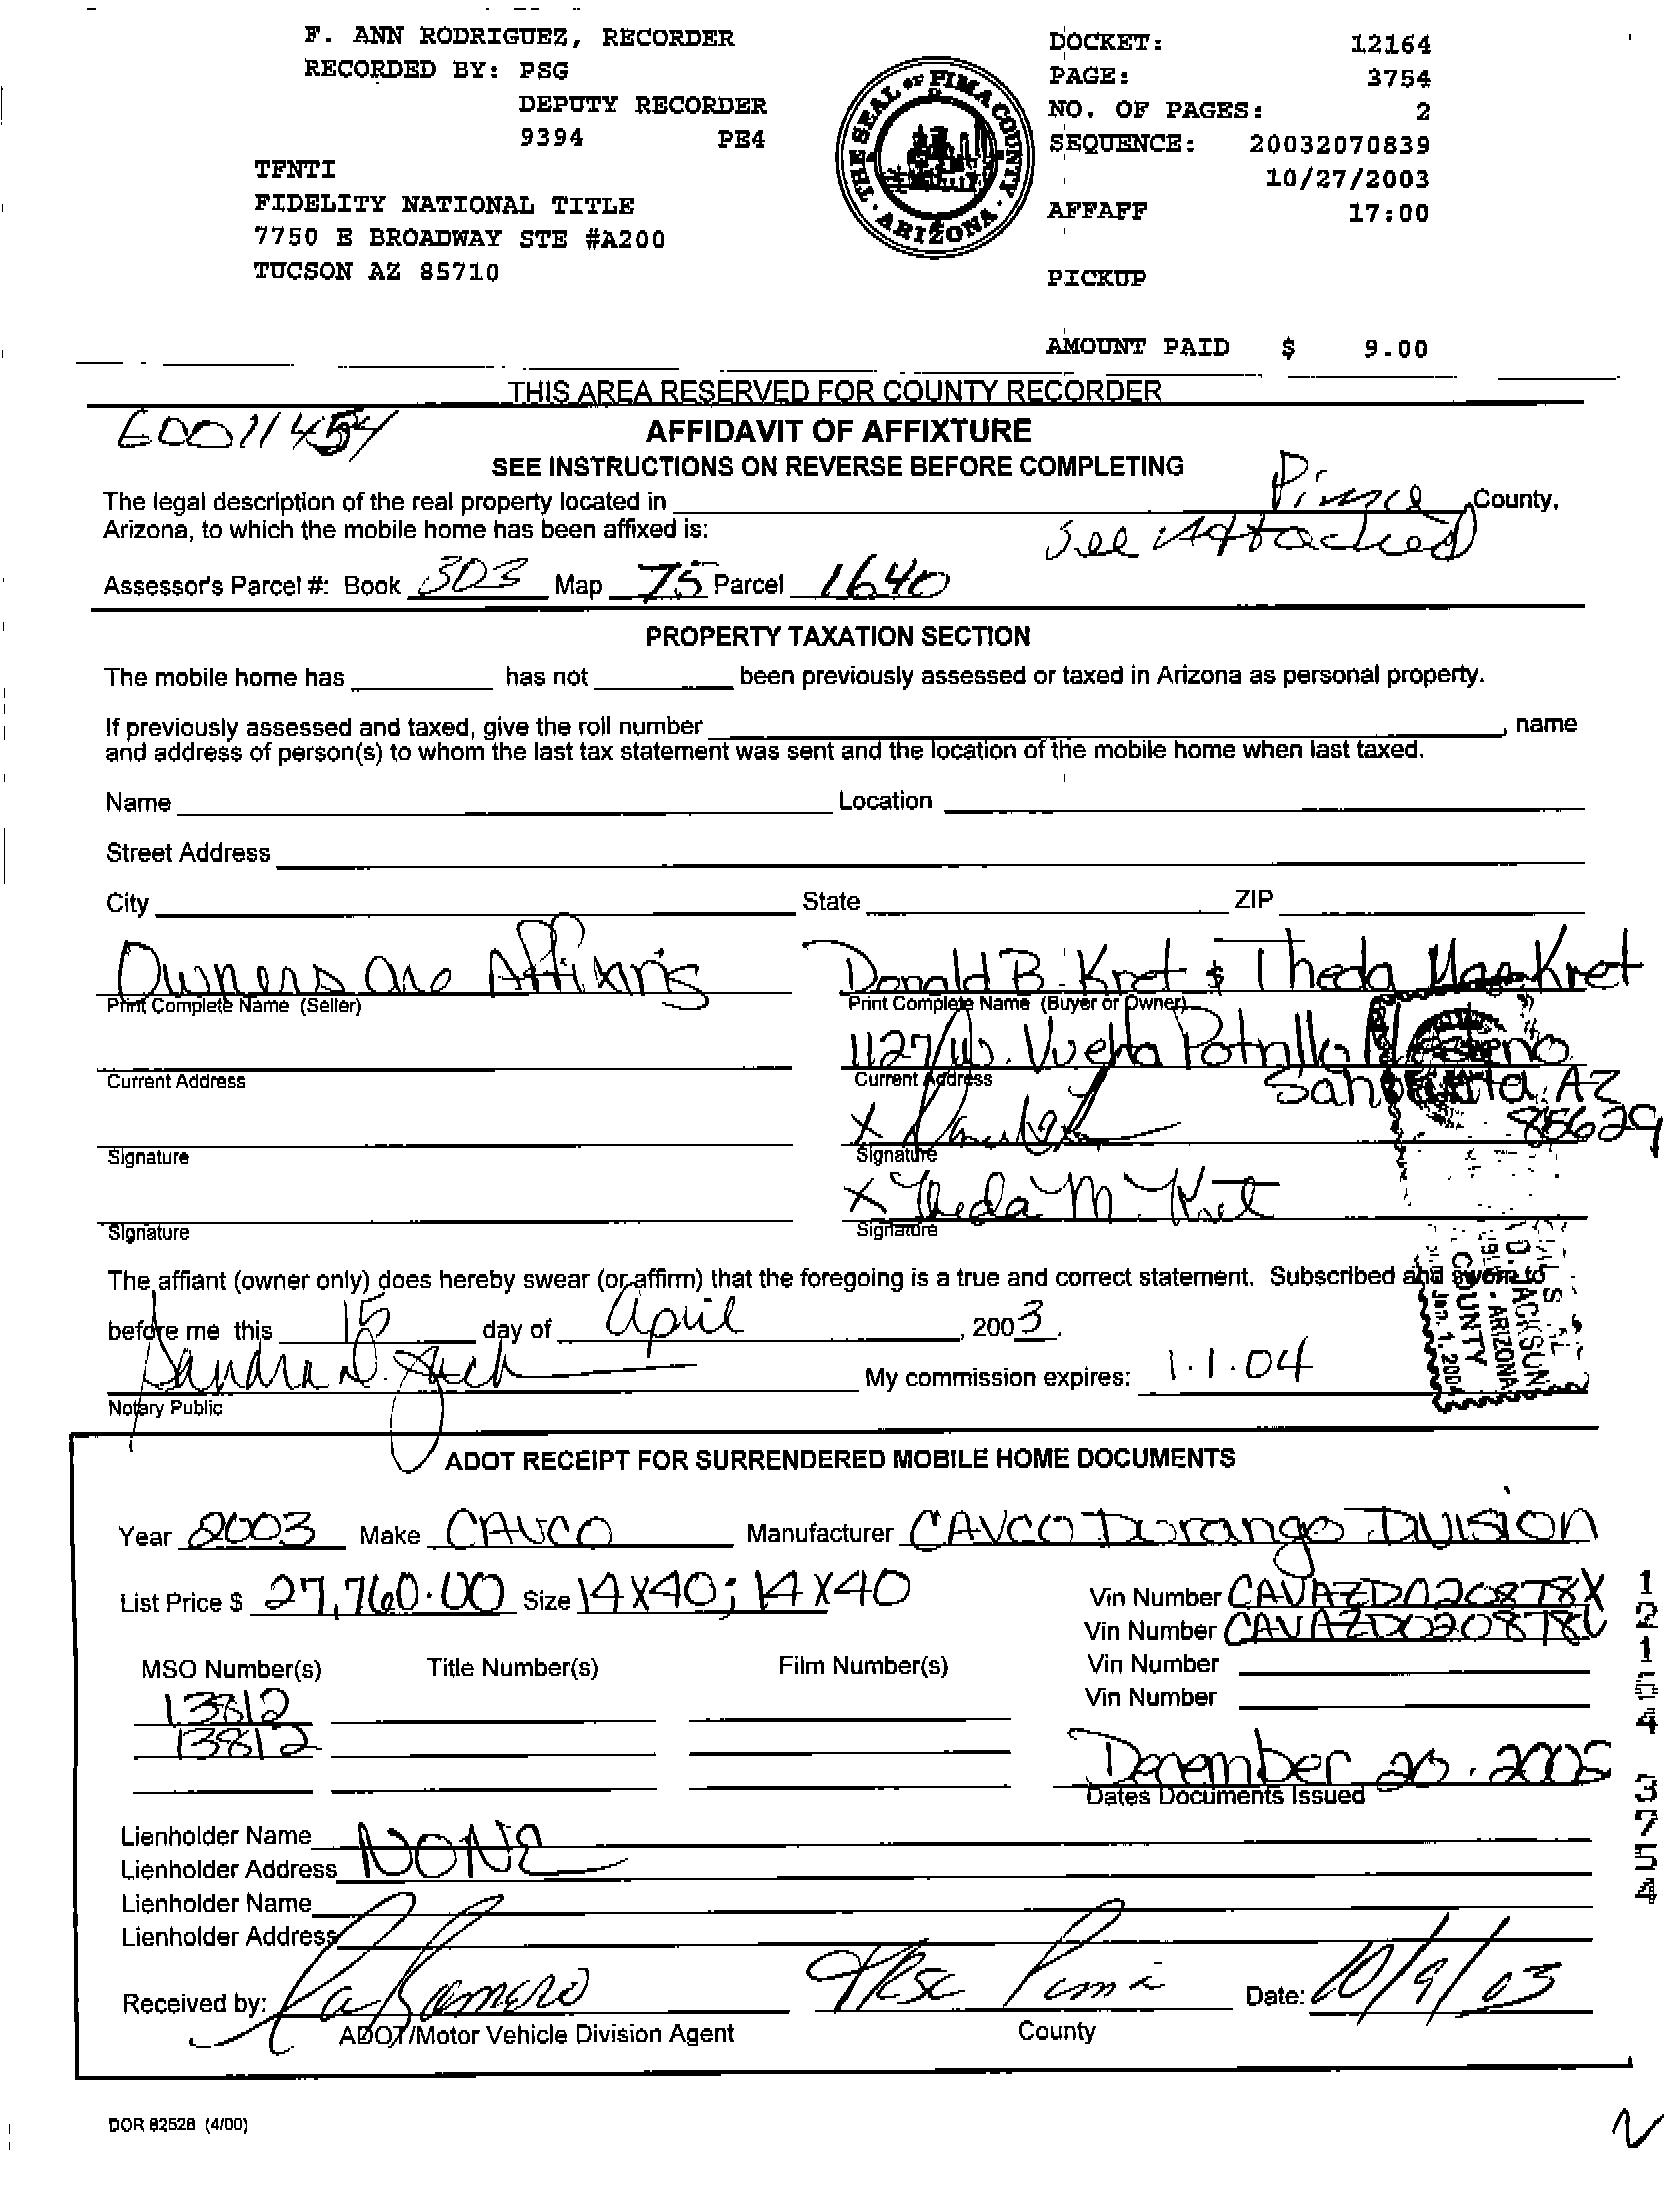 F. ANN RODRIGUEZ, RECORDER
RECORDED BY: PSG
DEPUTY RECORDER
9394 PE4
TFNTI
FIDELITY NATIONAL TITLE
7750 E BROADWAY STE #A200
TUCSON AZ 85710
THE SEAL OF PIMA COUNTY · ARIZONA ·
DOCKET: 12164
PAGE: 3754
NO. OF PAGES: 2
SEQUENCE: 20032070839
10/27/2003
AFFAFF 17:00
PICKUP
AMOUNT PAID $ 9.00
THIS AREA RESERVED FOR COUNTY RECORDER
60011454
AFFIDAVIT OF AFFIXTURE
SEE INSTRUCTIONS ON REVERSE BEFORE COMPLETING
The legal description of the real property located in County,
Arizona, to which the mobile home has been affixed is: See Attached
Assessor's Parcel #: Book 303 Map 75 Parcel 1640
PROPERTY TAXATION SECTION
The mobile home has has not been previously assessed or taxed in Arizona as personal property.
If previously assessed and taxed, give the roll number , name
and address of person(s) to whom the last tax statement was sent and the location of the mobile home when last taxed.
Name Location
Street Address
City State ZIP
Owners are Affixing Donald B. Kret & Theda Mae Kret
Print Complete Name (Seller) Print Complete Name (Buyer or Owner)
1127 W. Vuelta Potrillo
Current Address Current Address
Sahuarita, AZ
85629
X
Signature Signature
X Theda M Kret
Signature Signature
The affiant (owner only) does hereby swear (or affirm) that the foregoing is a true and correct statement. Subscribed and sworn to
before me this 15 day of April , 2003.
Sandra D.
My commission expires: 1.1.04
Notary Public
D. JACKSON
ARIZONA
COUNTY
Jan. 1, 2004
ADOT RECEIPT FOR SURRENDERED MOBILE HOME DOCUMENTS
Year 2003 Make CAVCO Manufacturer CAVCO Durango Division
List Price $ 27,760.00 Size 14X40; 14X40 Vin Number CAVAZD020878X
Vin Number CAVAZD020878U
MSO Number(s) Title Number(s) Film Number(s) Vin Number
13812 Vin Number
13812
December 20, 2002
Dates Documents Issued
Lienholder Name NONE
Lienholder Address
Lienholder Name
Lienholder Address
Received by: Romero Pima Date: 10/9/03
ADOT/Motor Vehicle Division Agent County
12164 3754
DOR 82528 (4/00)